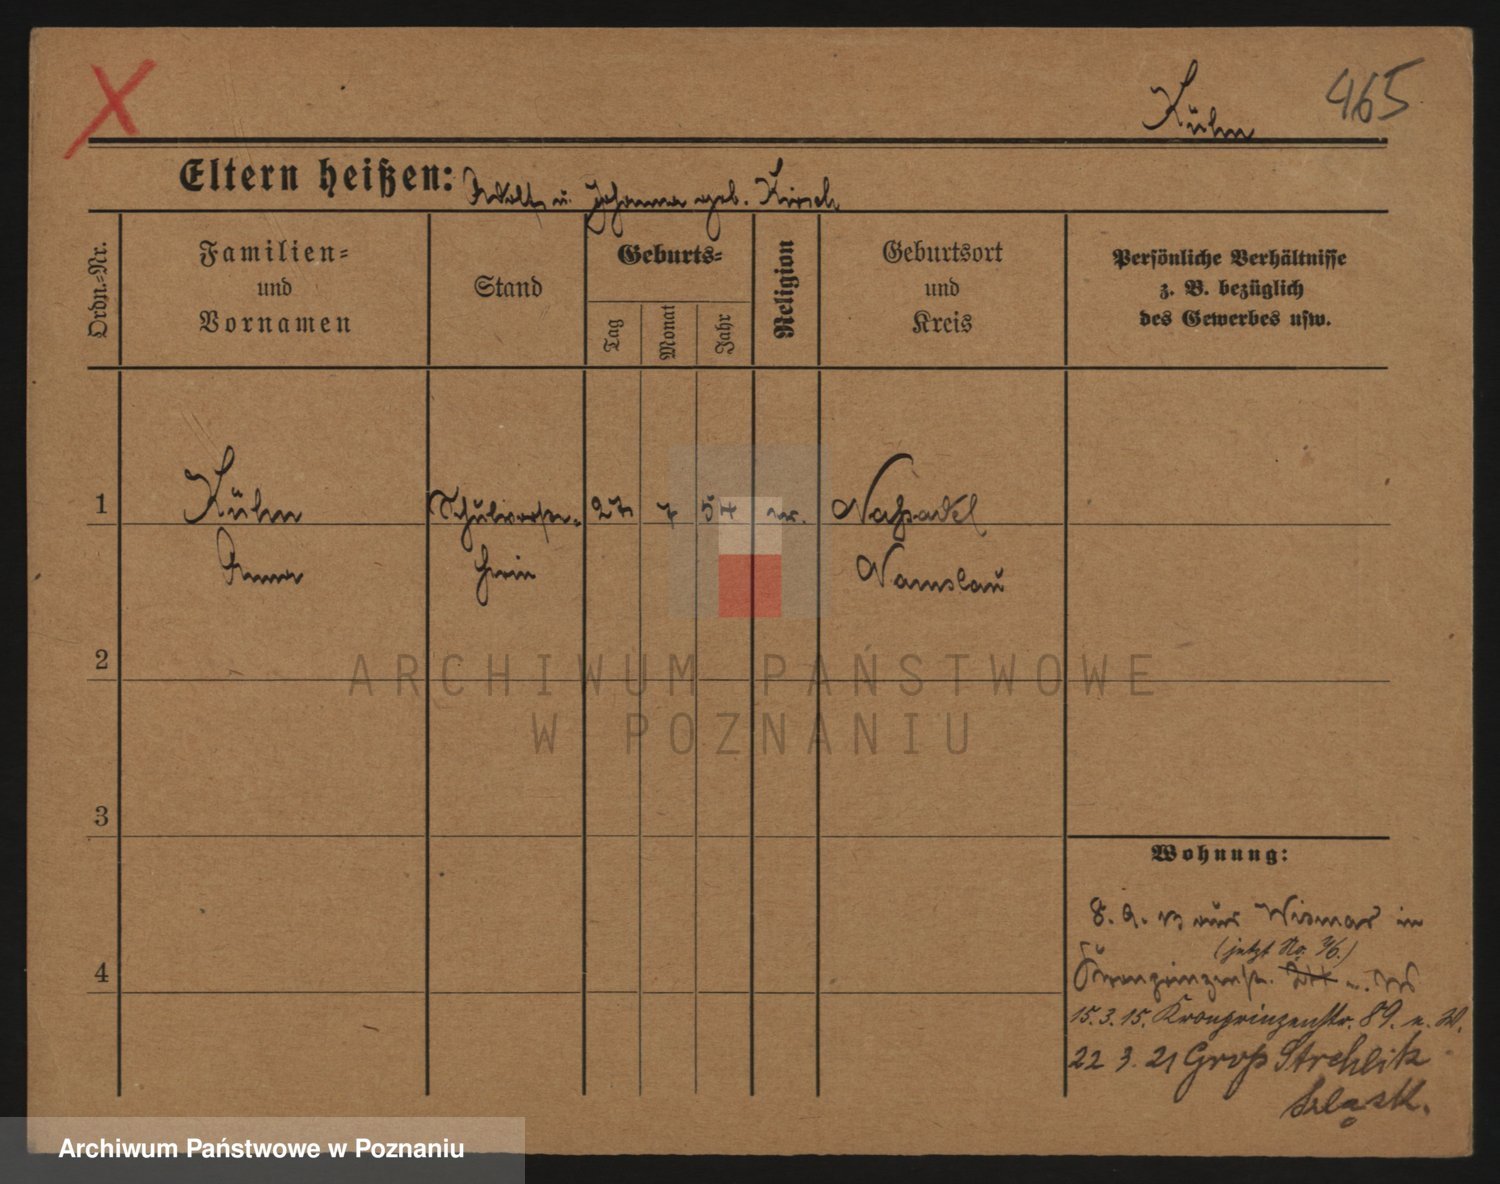 Kühn 465
Eltern heißen: Adolf u. Johanna geb. Kirsch
Ordn.-Nr.
Familien-
und
Vornamen
Stand
Geburts-
Tag
Monat
Jahr
Religion
Geburtsort
und
Kreis
Persönliche Verhältnisse
z. B. bezüglich
des Gewerbes usw.
1 Kühn Schulvorste- 27 7 54 ev. Naßadel
Anna herin Namslau
2
3
4
Wohnung:
8. 9. 13 aus Wismar in
(jetzt No.
Kronprinzenstr.
15. 3. 15. Kronprinzenstr. 89. n. W.
22 3. 21 Groß Strehlitz
ARCHIWUM PAŃSTWOWE
W POZNANIU
Archiwum Państwowe w Poznaniu